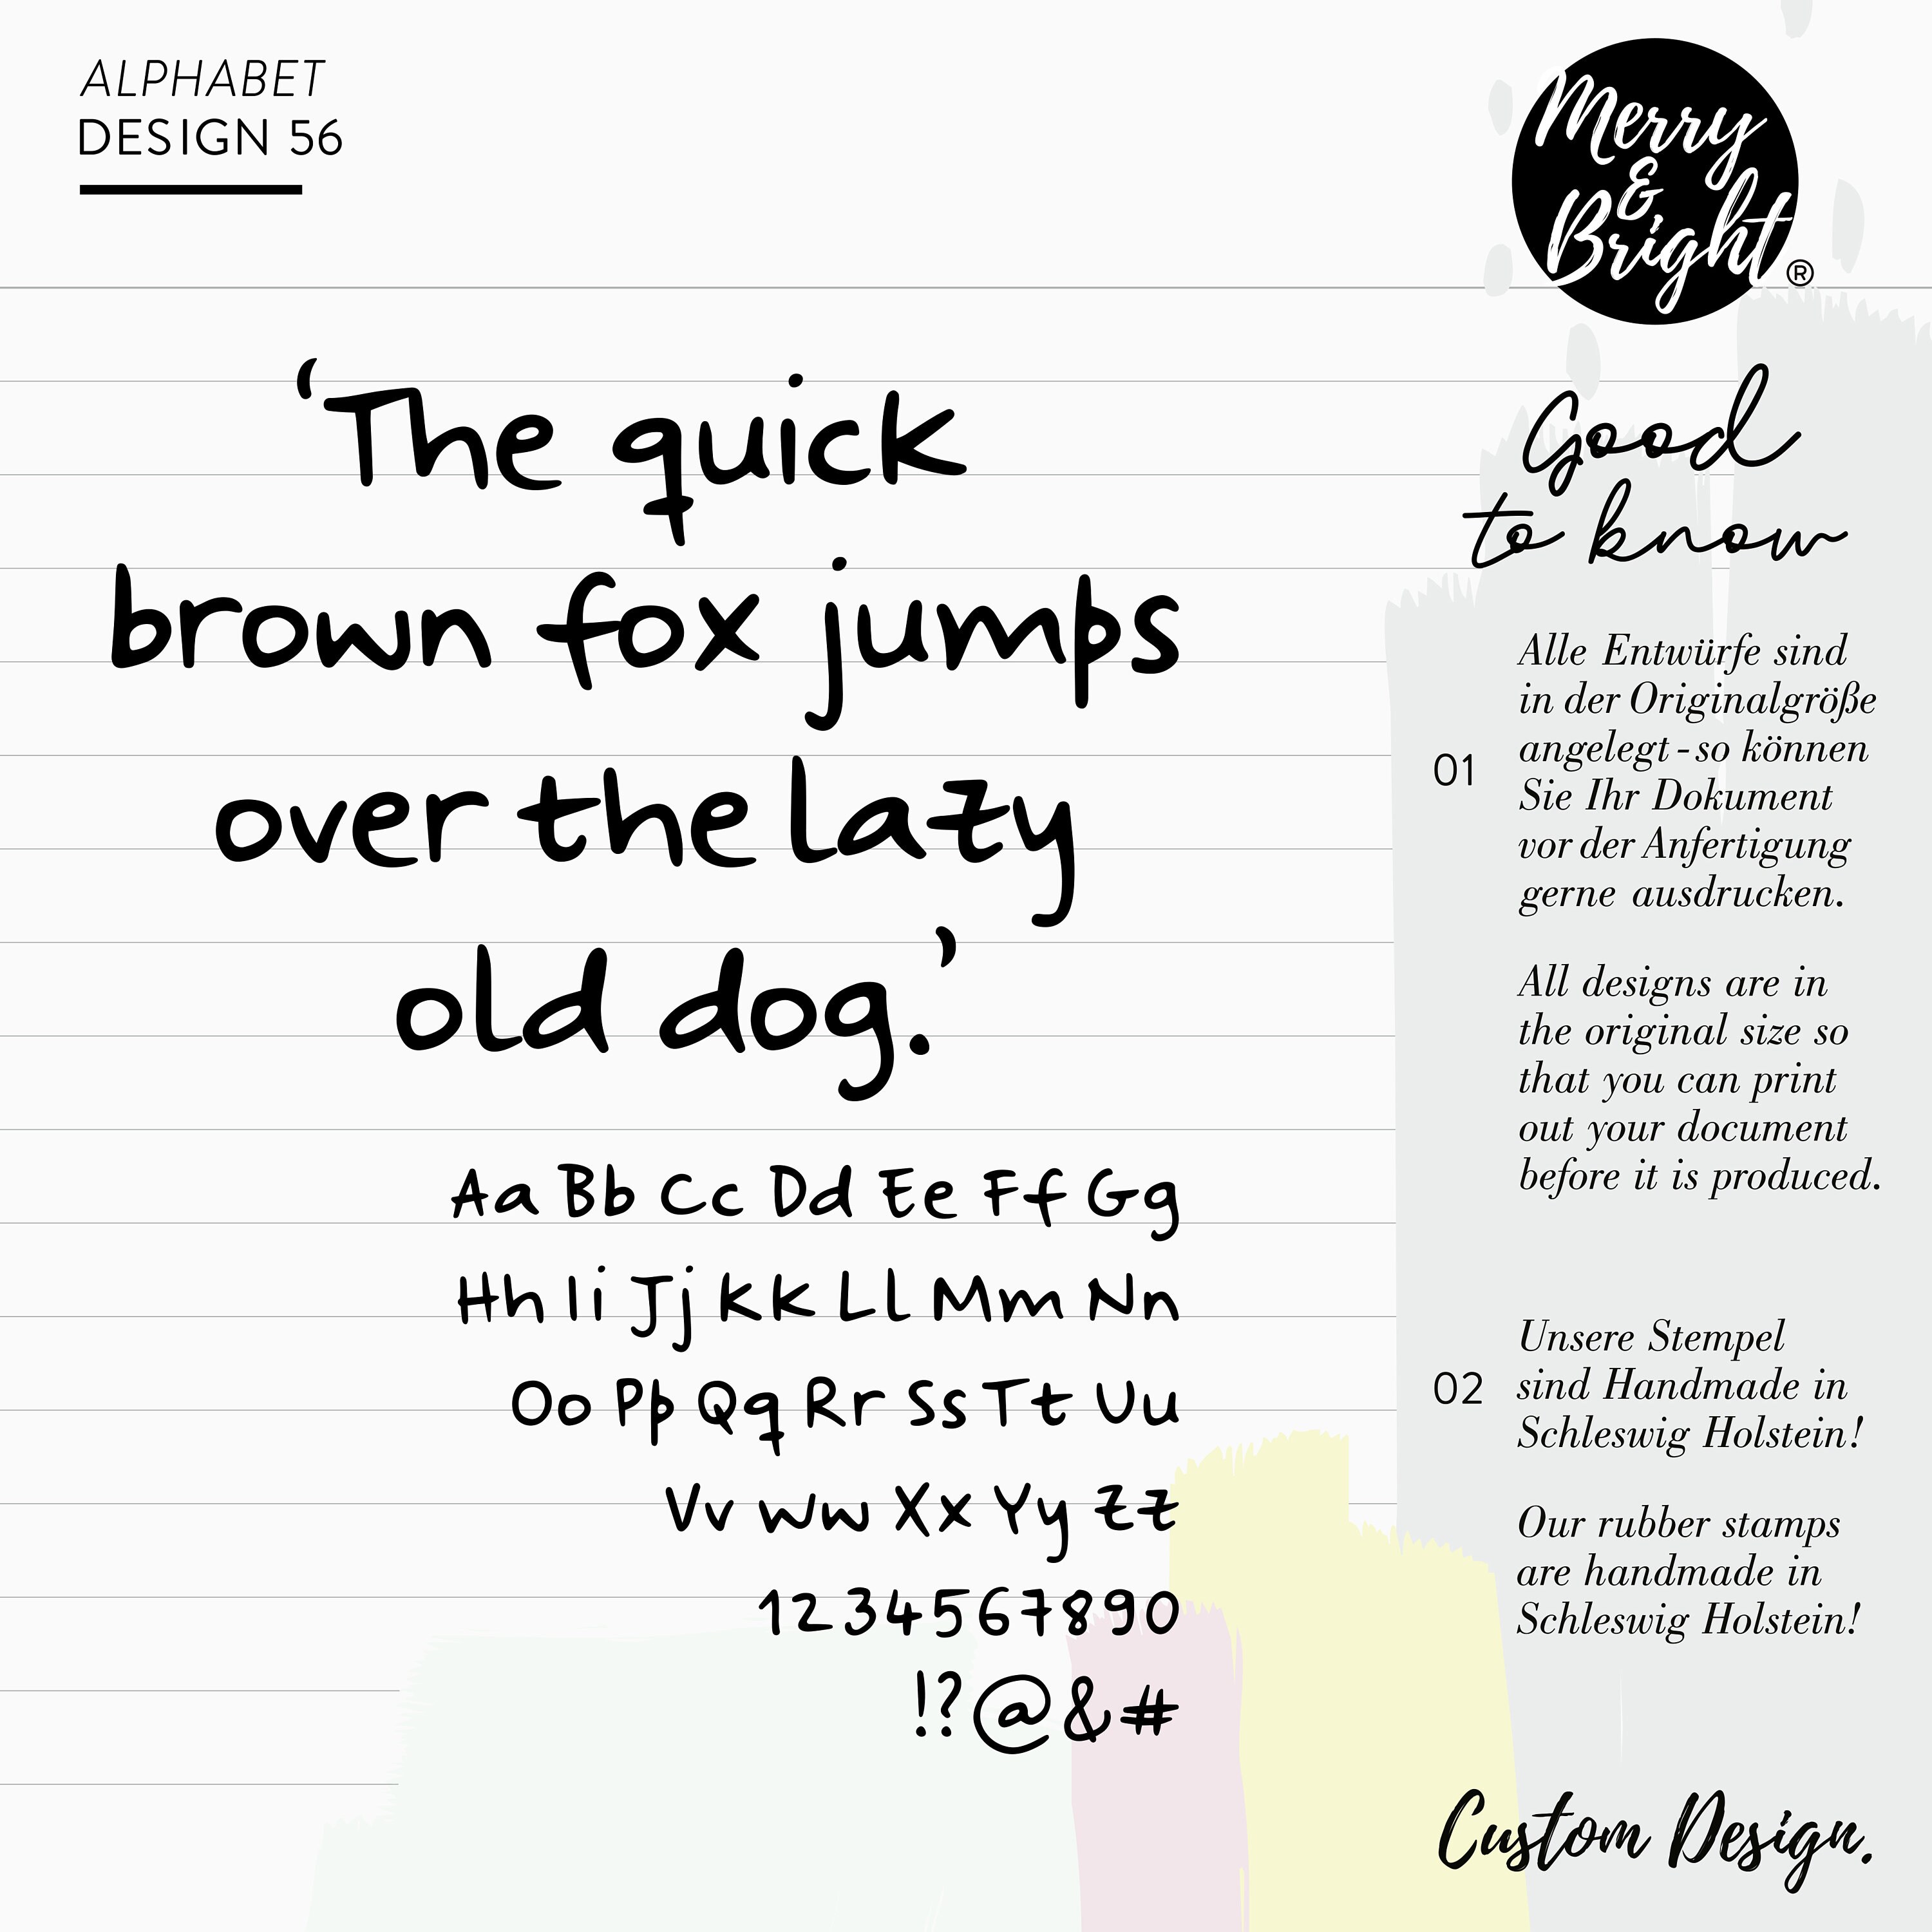 ALPHABET
DESIGN 56
Merry
&
Bright
®
‘The quick
brown fox jumps
over the lazy
old dog.’
Aa Bb Cc Dd Ee Ff Gg
Hh Ii Jj Kk Ll Mm Nn
Oo Pp Qq Rr Ss Tt Uu
Vv Ww Xx Yy Zz
1234567890
!?@&#
Good
to know
01
Alle Entwürfe sind
in der Originalgröße
angelegt - so können
Sie Ihr Dokument
vor der Anfertigung
gerne ausdrucken.
All designs are in
the original size so
that you can print
out your document
before it is produced.
02
Unsere Stempel
sind Handmade in
Schleswig Holstein!
Our rubber stamps
are handmade in
Schleswig Holstein!
Custom Design.